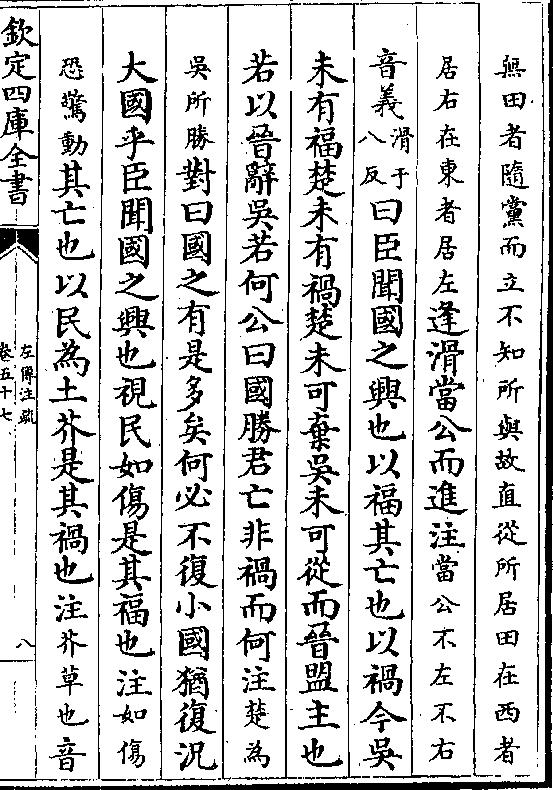 無田者隨黨而立不知所與故直從所居田在西者
居右在東者居左逢滑當公而進注當公不左不右
音義滑于八反曰臣聞國之興也以福其亡也以禍今吳
未有福楚未有禍楚未可棄吳未可從而晉盟主也
若以晉辭吳若何公曰國勝君亡非禍而何注楚為
吳所勝對曰國之有是多矣何必不復小國猶復況
大國乎臣聞國之興也視民如傷是其福也注如傷
恐驚動其亡也以民為土芥是其禍也注芥草也音
欽定四庫全書
左傳注疏
卷五十七
八